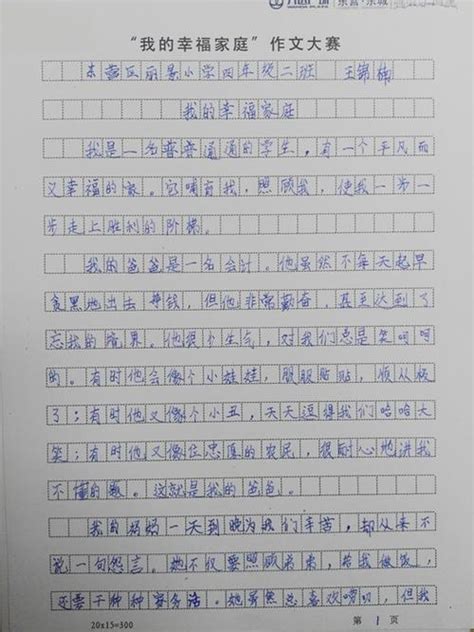 东营·东城
“我的幸福家庭”作文大赛
东营区丽景小学四年级二班 王锦楠
我的幸福家庭
我是一名普普通通的学生，有一个平凡而
又幸福的家。它哺育我，照顾我，使我一步一
步走上胜利的阶梯。
我的爸爸是一名会计。他虽然不每天起早
贪黑地出去挣钱，但他非常勤奋，甚至达到了
忘我的境界。他很少生气，对我们总是笑呵呵
的。有时他会像个小娃娃，服服贴贴，顺从极
了；有时他又像个小丑，天天逗得我们哈哈大
笑；有时他又像位忠厚的农民，很耐心地讲我
不懂的题。这就是我的爸爸。
我的妈妈一天到晚为我们辛苦，却从来不
说一句怨言。她不仅要照顾弟弟，给我做饭，
还要干种种家务活。她虽然总喜欢唠叨，但我
20x15=300
第 1 页